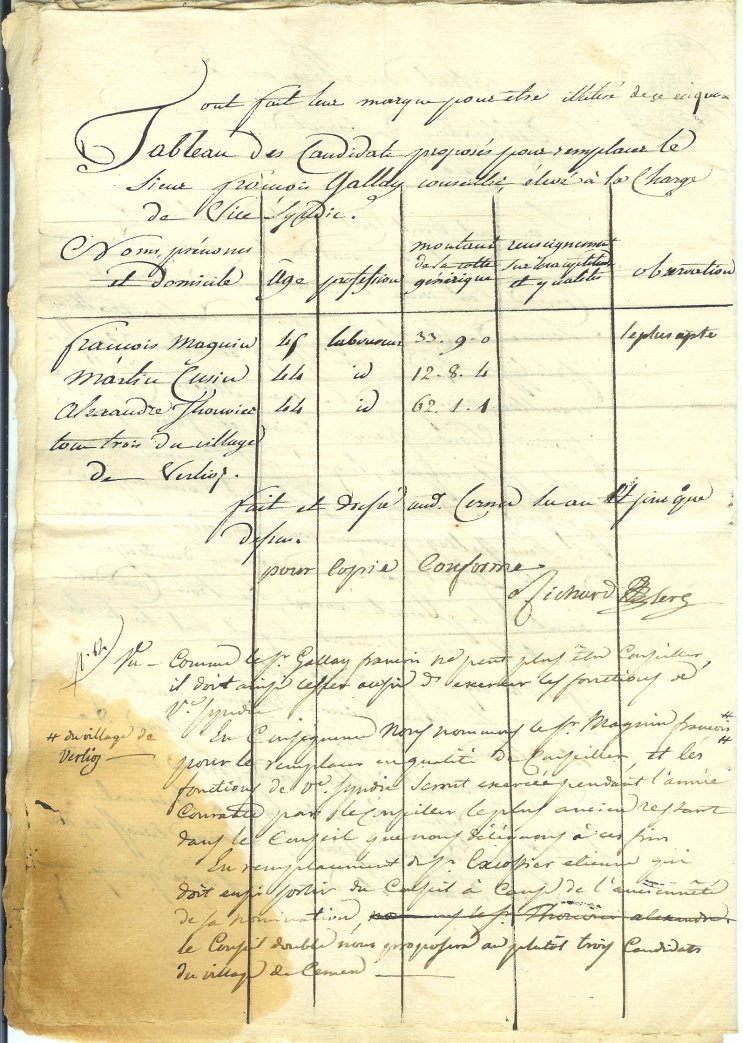 ont fait leur marque pour etre illiteré de ce enquis
Tableau des Candidats proposés pour remplacer le
Sieur françois Gallay conseiller élevé à la Charge
de Vice Syndic.
Noms, prénoms et domicile | Age | profession | montant de la cotte générique | renseignement sur leur aptitude et qualités | observation
françois Magnin | 45 | laboureur | 33. 9. 0 | le plus apte
Martin Cusin | 44 | id | 12. 8. 4
Alexandre Thouvier | 44 | id | 62. 1. 1
tous trois du village
de Verlioz.
fait et dressé aud. Cernex lu au jour que
dessus.
pour Copie Conforme
Richard
Vu – Comme le Sr. Gallay francois ne peut plus être Conseiller,
il doit ainsi cesser aussi d'exercer les fonctions de
Ve. syndic
En Conséquence Nous nommons le Sr. Magnin francois #
# du village de
Verlioz
pour le remplacer en qualité de Conseiller, et les
fonctions de Ve. syndic seront exercées pendant l'année
Courante par le Conseiller le plus ancien restant
dans le Conseil que nous déléguons à ces fins
En remplacement du Sr. Excoffier etienne qui
doit aussi sortir du Conseil à Cause de l'ancienneté
de sa nomination, nous nommons le Sr. Thouvier alexandre
le Conseil double nous proposera au plutôt trois Candidats
du village de Cernex